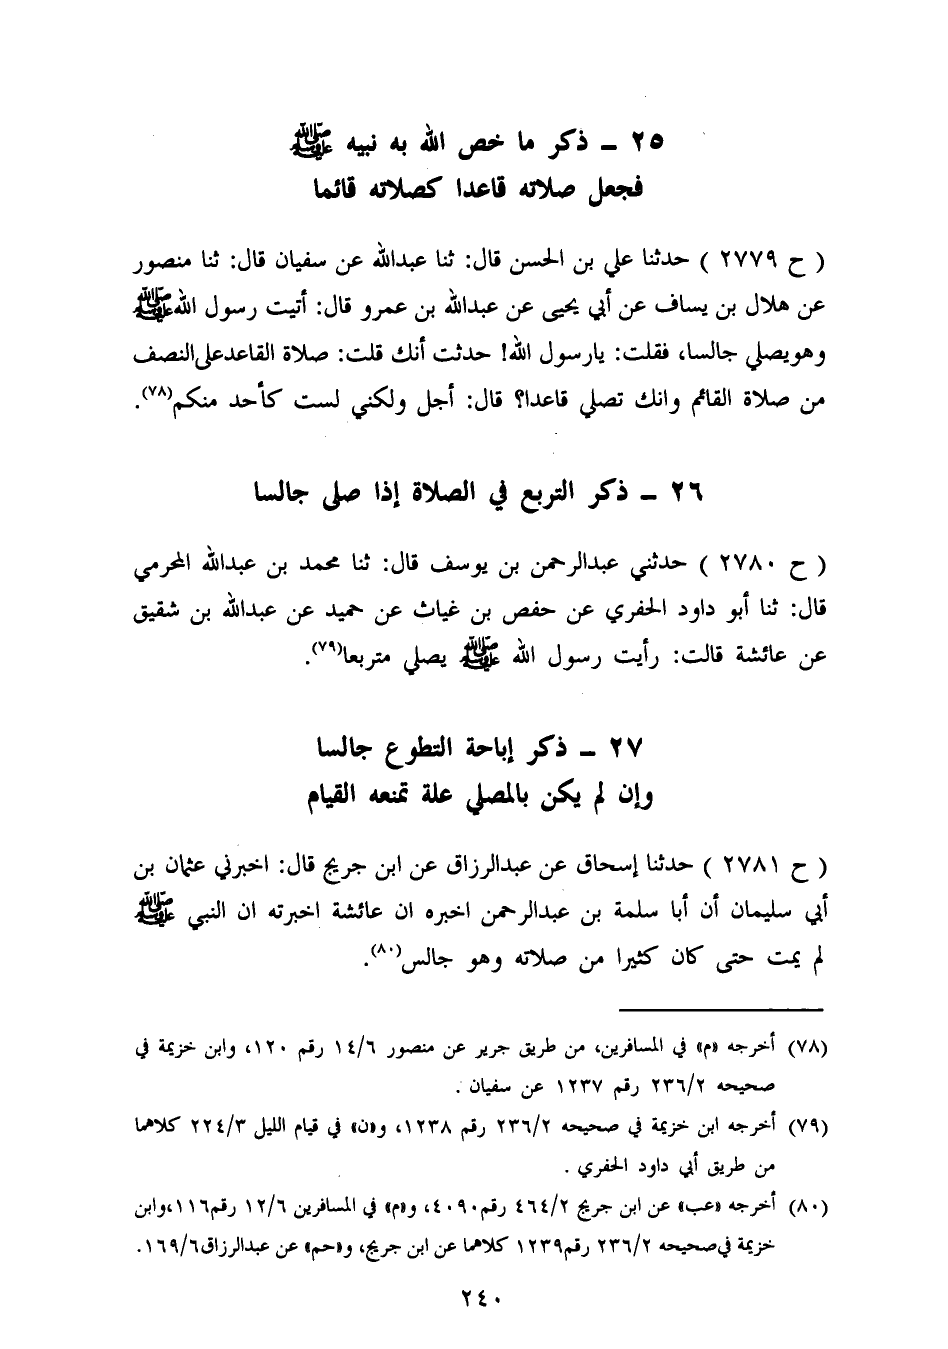 ٢٥ ـ ذكر ما خص الله به نبيه ﷺ
فجعل صلاته قاعدا كصلاته قائما
( ح ٢٧٧٩ ) حدثنا علي بن الحسن قال: ثنا عبدالله عن سفيان قال: ثنا منصور
عن هلال بن يساف عن أبي يحيى عن عبدالله بن عمرو قال: أتيت رسول الله ﷺ
وهويصلي جالسا، فقلت: يارسول الله! حدثت أنك قلت: صلاة القاعدعلى النصف
من صلاة القائم وانك تصلي قاعدا؟ قال: أجل ولكني لست كأحد منكم(٧٨).
٢٦ ـ ذكر التربع في الصلاة إذا صلى جالسا
( ح ٢٧٨٠ ) حدثني عبدالرحمن بن يوسف قال: ثنا محمد بن عبدالله المخرمي
قال: ثنا أبو داود الحفري عن حفص بن غياث عن حميد عن عبدالله بن شقيق
عن عائشة قالت: رأيت رسول الله ﷺ يصلي متربعا(٧٩).
٢٧ ـ ذكر إباحة التطوع جالسا
وإن لم يكن بالمصلي علة تمنعه القيام
( ح ٢٧٨١ ) حدثنا إسحاق عن عبدالرزاق عن ابن جريج قال: اخبرني عثمان بن
أبي سليمان أن أبا سلمة بن عبدالرحمن اخبره ان عائشة اخبرته ان النبي ﷺ
لم يمت حتى كان كثيرا من صلاته وهو جالس(٨٠).
(٧٨) أخرجه «م» في المسافرين، من طريق جرير عن منصور ١٤/٦ رقم ١٢٠، وابن خزيمة في
صحيحه ٢٣٦/٢ رقم ١٢٣٧ عن سفيان .
(٧٩) أخرجه ابن خزيمة في صحيحه ٢٣٦/٢ رقم ١٢٣٨، و«ن» في قيام الليل ٢٢٤/٣ كلاهما
من طريق أبي داود الحفري .
(٨٠) أخرجه «عب» عن ابن جريج ٤٦٤/٢ رقم ٤٠٩٠، و«م» في المسافرين ١٢/٦ رقم ١١٦، وابن
خزيمة في صحيحه ٢٣٦/٢ رقم ١٢٣٩ كلاهما عن ابن جريج، و«حم» عن عبدالرزاق ١٦٩/٦.
٢٤٠